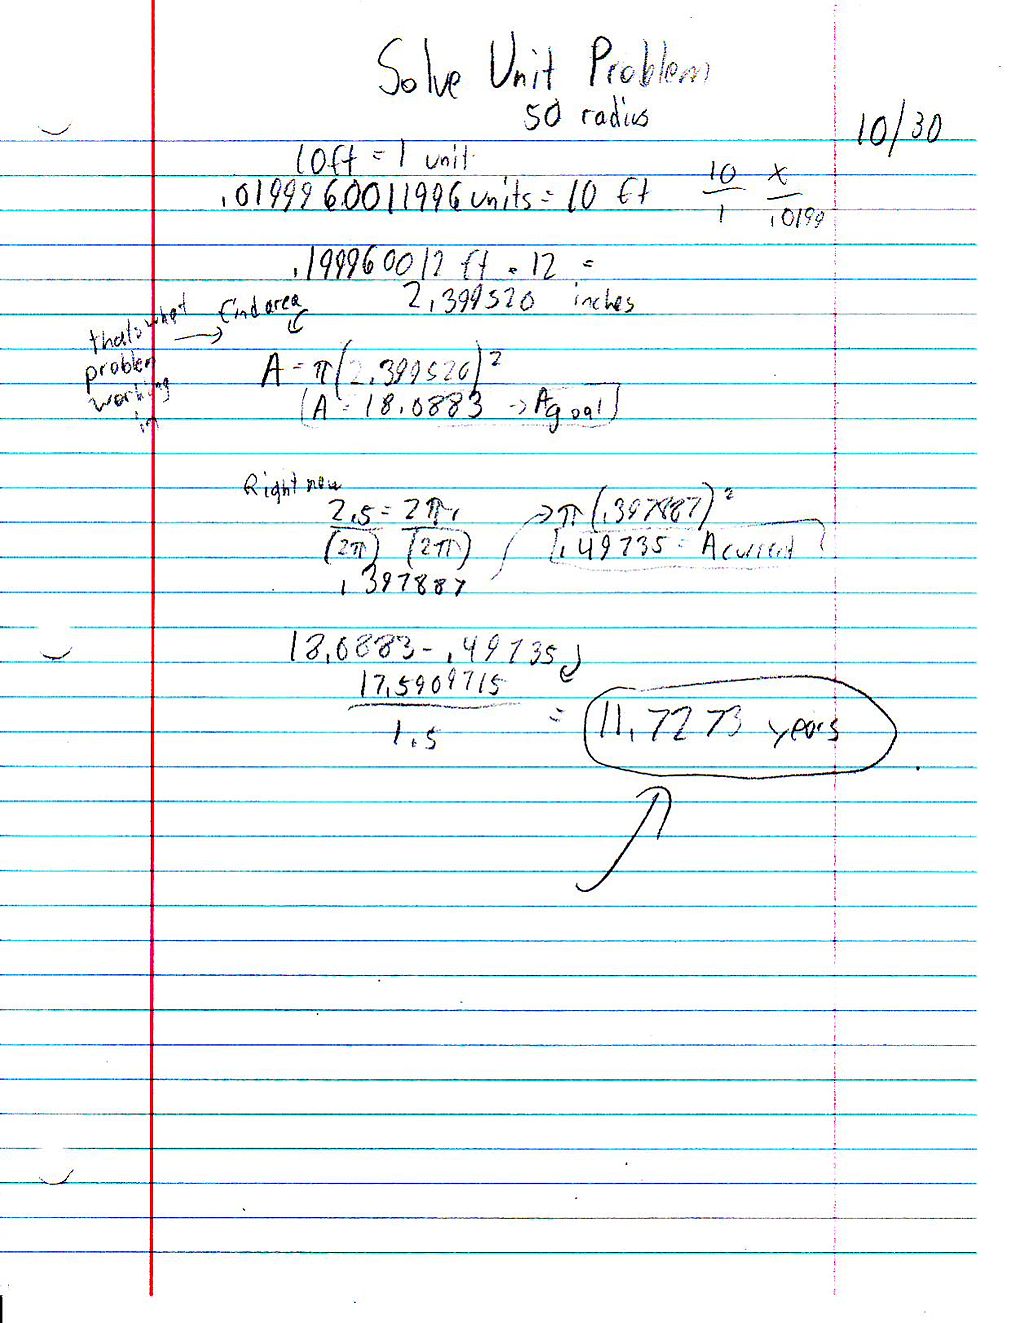 Solve Unit Problem
50 radius
10/30
10ft = 1 unit
.0199960011996 units = 10 ft
10/1 x/.0199
.199960012 ft . 12 =
2.399520 inches
thats what problem working in → find area
A = π(2.399520)²
A = 18.0883 → Agoal
Right now
2.5 = 2πr
(2π) (2π)
.397887
→ π(.397887)²
.49735 = Acurrent
18.0883 - .49735
17.5909715
1.5
= 11.7273 years